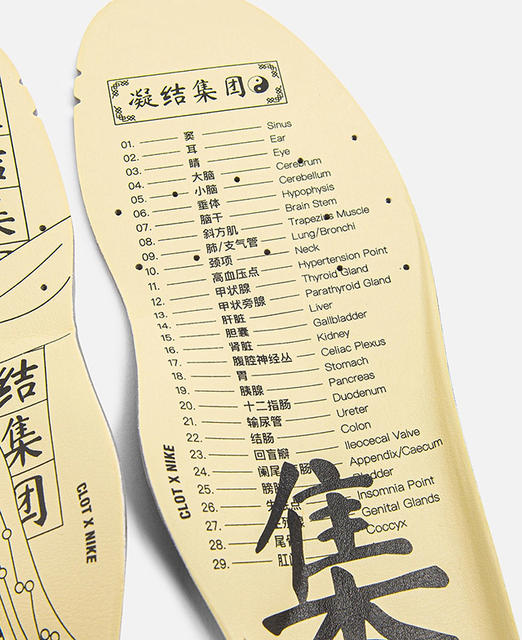 凝结集团
01. 窦 Sinus
02. 耳 Ear
03. 睛 Eye
04. 大脑 Cerebrum
05. 小脑 Cerebellum
06. 垂体 Hypophysis
07. 脑干 Brain Stem
08. 斜方肌 Trapezius Muscle
09. 肺/支气管 Lung/Bronchi
10. 颈项 Neck
11. 高血压点 Hypertension Point
12. 甲状腺 Thyroid Gland
13. 甲状旁腺 Parathyroid Gland
14. 肝脏 Liver
15. 胆囊 Gallbladder
16. 肾脏 Kidney
17. 腹腔神经丛 Celiac Plexus
18. 胃 Stomach
19. 胰腺 Pancreas
20. 十二指肠 Duodenum
21. 输尿管 Ureter
22. 结肠 Colon
23. 回盲瓣 Ileocecal Valve
24. 阑尾 肠 Appendix/Caecum
25. 膀 Bladder
26. Insomnia Point
27. Genital Glands
28. 尾 Coccyx
29. 肛
集
CLOT X NIKE
结
集
结
集
团
CLOT X NIKE